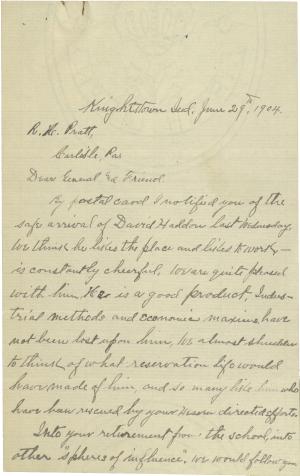 Knightstown Ind. June 29th, 1904.
R. H. Pratt,
Carlisle, Pa
Dear General & Friend.
By postal card I notified you of the
safe arrival of David Haddon last Wednesday.
We think he likes the place and likes to work –
is constantly cheerful. We are quite pleased
with him. He is a good product, Indus-
trial methods and economic maxims have
not been lost upon him, We almost shudder
to think of what reservation life would
have made of him, and so many like him who
have been rescued by your directed efforts
Into your retirement from the school, into
other "spheres of influence", we would follow you